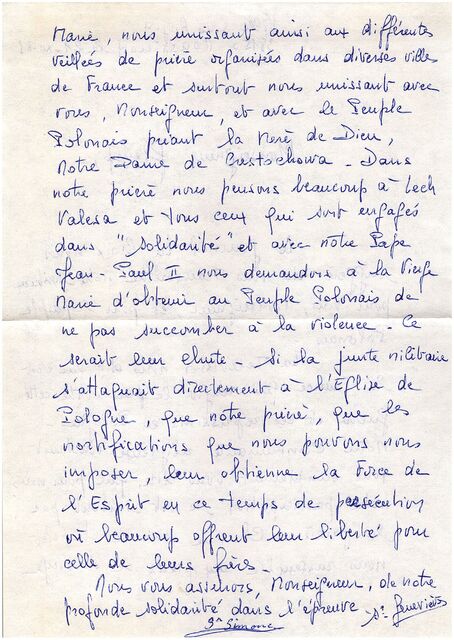 Marie, nous unissant ainsi aux différentes
veillées de prière organisées dans diverses villes
de France et surtout nous unissant avec
vous, Monseigneur, et avec le Peuple
Polonais priant la Mère de Dieu,
Notre Dame de Czestochowa - Dans
notre prière nous pensons beaucoup à Lech
Valesa et tous ceux qui sont engagés
dans "Solidarité" et avec notre Pape
Jean-Paul II nous demandons à la Vierge
Marie d'obtenir au Peuple Polonais de
ne pas succomber à la violence - Ce
serait leur chute - Si la junte militaire
s'attaquait directement à l'Eglise de
Pologne, que notre prière, que les
mortifications que nous pouvons nous
imposer, leur obtienne la Force de
l'Esprit en ce temps de persécution
où beaucoup offrent leur liberté pour
celle de leurs frères -
Nous vous assurons, Monseigneur, de notre
profonde solidarité dans l'épreuve Sr Geneviève
Sr Simone